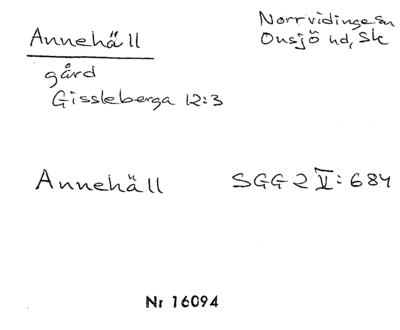 Annehäll
Norrvidinge sn
Onsjö hd, Sk
gård
Gissleberga 12:3
Annehäll
SGG 2 V: 684
Nr 16094